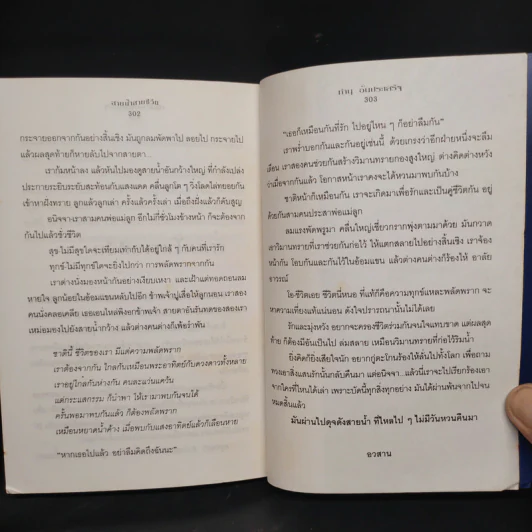 สายน้ำสายชีวิต
302
กระจายออกจากกันอย่างสิ้นเชิง มันถูกลมพัดพาไป ลอยไป กระจายไป
แล้วผลสุดท้ายก็หายลับไปจากสายตา...
เราก้มหน้าลง แล้วหันไปมองดูสายน้ำอันกว้างใหญ่ ที่กำลังเปล่ง
ประกายระยิบระยับสะท้อนกับแสงแดด คลื่นลูกโต ๆ วิ่งไล่คไลทยอยกัน
เข้าหาฝั่งทราย ลูกแล้วลูกเล่า ครั้งแล้วครั้งเล่า เมื่อถึงฝั่งแล้วก็ดับสูญ
อนิจจาเราสามคนพ่อแม่ลูก อีกไม่กี่ชั่วโมงข้างหน้า ก็จะต้องจาก
กันไปแล้วชั่วชีวิต
สุข ไม่มีสุขใดจะเทียมเท่ากับได้อยู่ใกล้ ๆ กับคนที่เรารัก
ทุกข์ ไม่มีทุกข์ใดจะยิ่งไปกว่า การพลัดพรากจากกัน
เราต่างนั่งมองหน้ากันอย่างเงียบเหงา และเฝ้าแต่ทอดถอนลม
หายใจ ลูกน้อยในอ้อมแขนหลับไปอีก ข้าพเจ้าปูเสื่อให้ลูกนอน เราสอง
คนนั่งคลอเคลีย เธอเอนไหล่พิงอกข้าพเจ้า สายตาอันรันทดของสองเรา
เหม่อมองไปยังสายน้ำกว้าง แล้วต่างคนต่างก็เพ้อรำพัน
ชาตินี้ ชีวิตของเรา มีแต่ความพลัดพราก
เราต้องจากกัน ไกลกันเหมือนพระอาทิตย์กับดวงดาวทั้งหลาย
เราอยู่ไกลกันห่างกัน คนละแว่นแคว้น
แต่กระแสกรรม ก็นำพา ให้เรามาพบกันจนได้
ครั้นพอมาพบกันแล้ว ก็ต้องพลัดพราก
เหมือนหยาดน้ำค้าง เมื่อพบกับแสงอาทิตย์แล้วก็เลือนหาย
“หากเธอไปแล้ว อย่าลืมคิดถึงฉันนะ”
303
“เธอก็เหมือนกันที่รัก ไปอยู่ไหน ๆ ก็อย่าลืมกัน”
เราพร่ำบอกกันและกันอยู่เช่นนี้ ด้วยเกรงว่าอีกฝ่ายหนึ่งจะลืม
เลือน เราสองคนช่วยกันสร้างวิมานทรายกองสูงใหญ่ ต่างคิดต่างหวัง
ว่าเมื่อจากกันแล้ว โอกาสหน้าเราคงจะได้หวนมาพบกันบ้าง
ชาติหน้าก็เหมือนกัน เราจะเกิดมาเพื่อรักและเป็นคู่ชีวิตกัน อยู่
ด้วยกันสามคนประสาพ่อแม่ลูก
ลมแรงพัดพรูมา คลื่นใหญ่เชี่ยวกรากพุ่งตามมาด้วย มันกวาด
เอาวิมานทรายที่เราช่วยกันก่อไว้ ให้แตกสลายไปอย่างสิ้นเชิง เราจ้อง
หน้ากัน โอบกันและกันไว้ในอ้อมแขน แล้วต่างคนต่างก็ร้องไห้ อาลัย
อาวรณ์
โอ ชีวิตเอย ชีวิตนี้หนอ ที่แท้ก็คือความทุกข์แหละพลัดพราก จะ
หาความเที่ยงแท้แน่นอน ดังใจปรารถนานั้นไม่ได้เลย
รักและมุ่งหวัง อยากจะครองชีวิตร่วมกันจนใจแทบขาด แต่ผลสุด
ท้าย ก็ต้องมีอันเป็นไป ล่มสลาย เหมือนวิมานทรายที่ก่อไว้ริมน้ำ
ยิ่งคิดก็ยิ่งเสียใจนัก อยากกู่ตะโกนร้องให้ลั่นไปทั้งโลก เพื่อถาม
ทวงเอาสิ่งแสนรักนั้นกลับคืนมา แต่อนิจจา...แล้วนี่เราจะไปเรียกร้องเอา
จากใครที่ไหนได้เล่า เพราะบัดนี้ทุกสิ่งทุกอย่าง มันได้ผ่านพ้นจากไปจน
หมดสิ้นแล้ว
มันผ่านไปดุจดังสายน้ำ ที่ไหลไป ๆ ไม่มีวันหวนคืนมา
อวสาน